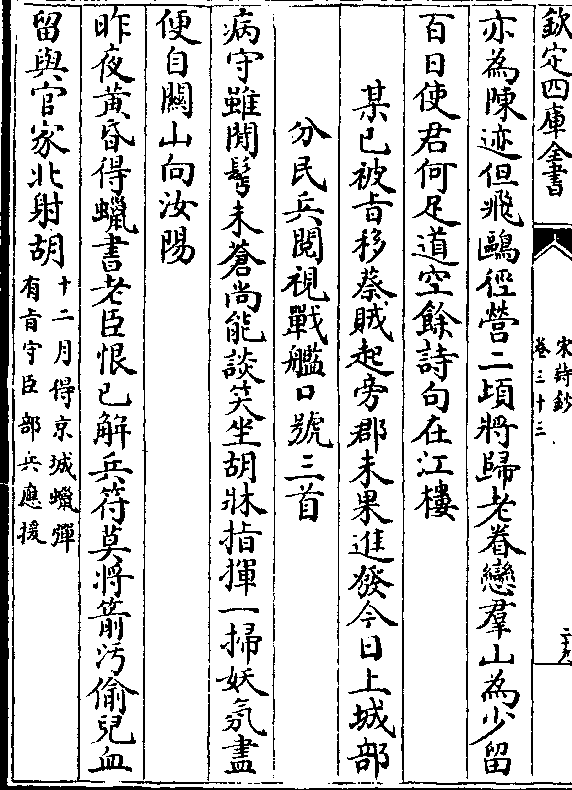 欽定四庫全書
宋詩鈔
卷三十三
亦為陳迹但飛鷗徑營二頃將歸老眷戀羣山為少留
百日使君何足道空餘詩句在江樓
某已被旨移蔡賊起旁郡未果進發今日上城部
分民兵閱視戰艦口號三首
病守雖閒髩未蒼尚能談笑坐胡牀指揮一掃妖氛盡
便自關山向汝陽
昨夜黃昏得蠟書老臣恨已解兵符莫將箭汚偷兒血
留與官家北射胡
十二月得京城蠟彈
有旨守臣部兵應援